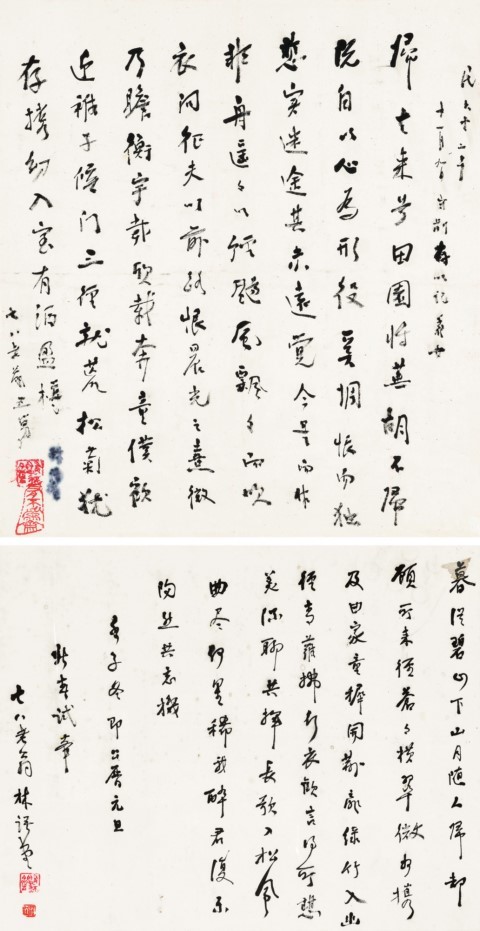 民六十二年
十一月
存以記
歸去来兮田園将蕪胡不歸
既自以心為形役奚惆悵而独
愁実迷途其未遠覚今是而昨
非舟遥々以輕颺風飄々而吹
衣问征夫以前路恨晨光之熹微
乃瞻衡宇載欣載奔童僕歡
迎稚子候门三徑就荒松菊犹
存携幼入室有酒盈樽
七八老
暮從碧山下山月随人帰却
顧所来徑蒼々横翠微相携
及田家童稚開荆扉绿竹入幽
徑青蘿拂行衣歡言得所憩
美酒聊共揮長歌入松風
曲尽河星稀我醉君復樂
陶然共忘機
壬子冬即公曆元旦
試筆
七八老翁林語堂